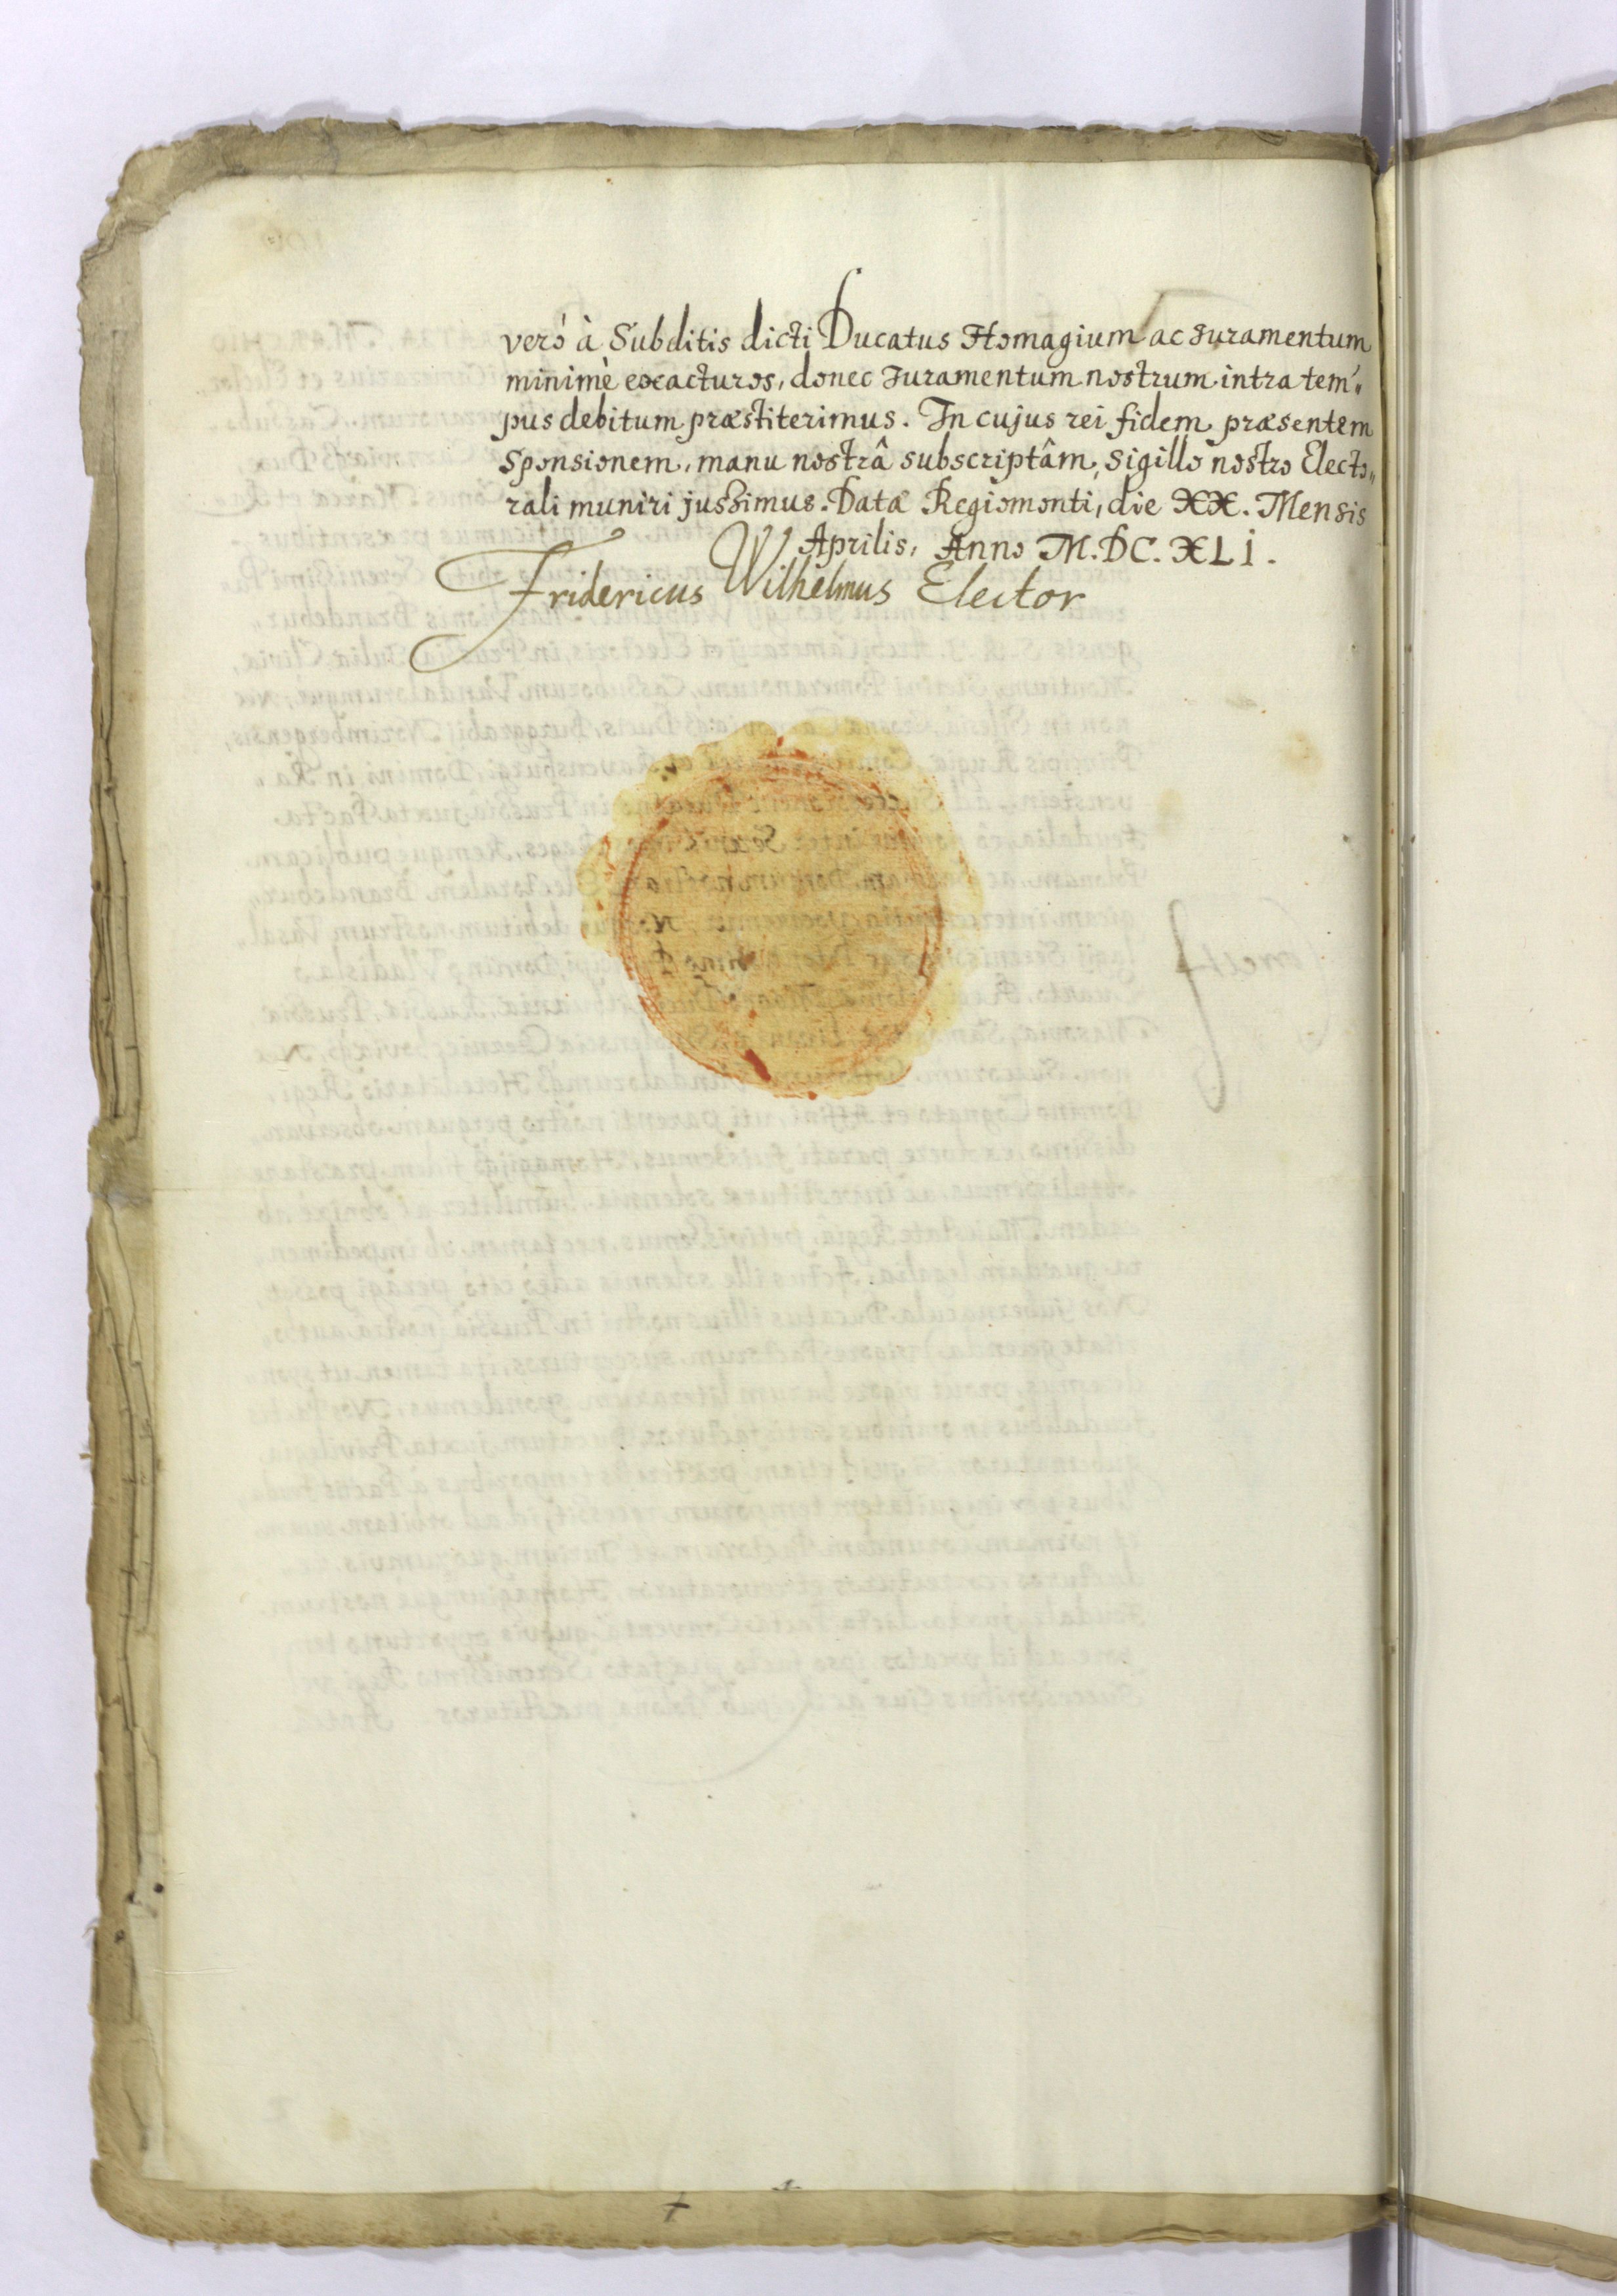 verò à Subditis dicti Ducatus Homagium ac Juramentum
minimè exacturos, donec Juramentum nostrum intra tem„
pus debitum præstiterimus. In cujus rei fidem præsentem
Sponsionem, manu nostrâ subscriptâm, Sigillo nostro Electo„
rali muniri jussimus. Data Regiomonti, die XX. Mensis
Aprilis, Anno M.DC.XLI.
Fridericus Wilhelmus Elector